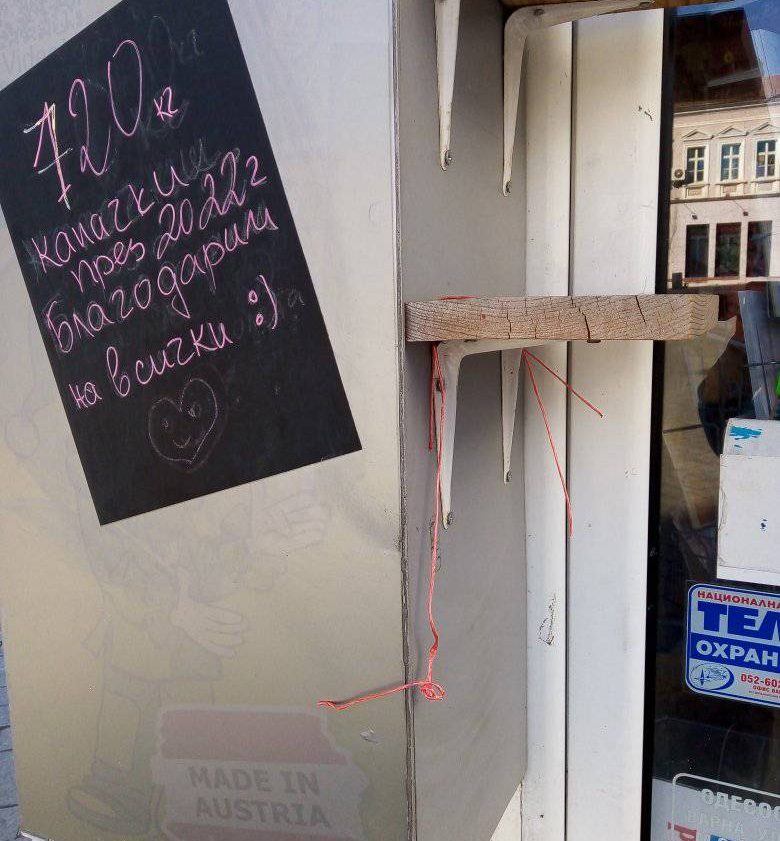 720 кг
капачки
през 2022г
Благодарим
на всички :)
MADE IN
AUSTRIA
НАЦИОНАЛНА
ТЕЛ
ОХРАН
052-602
ОФИС ВА
ОДЕСО
ВАРНА